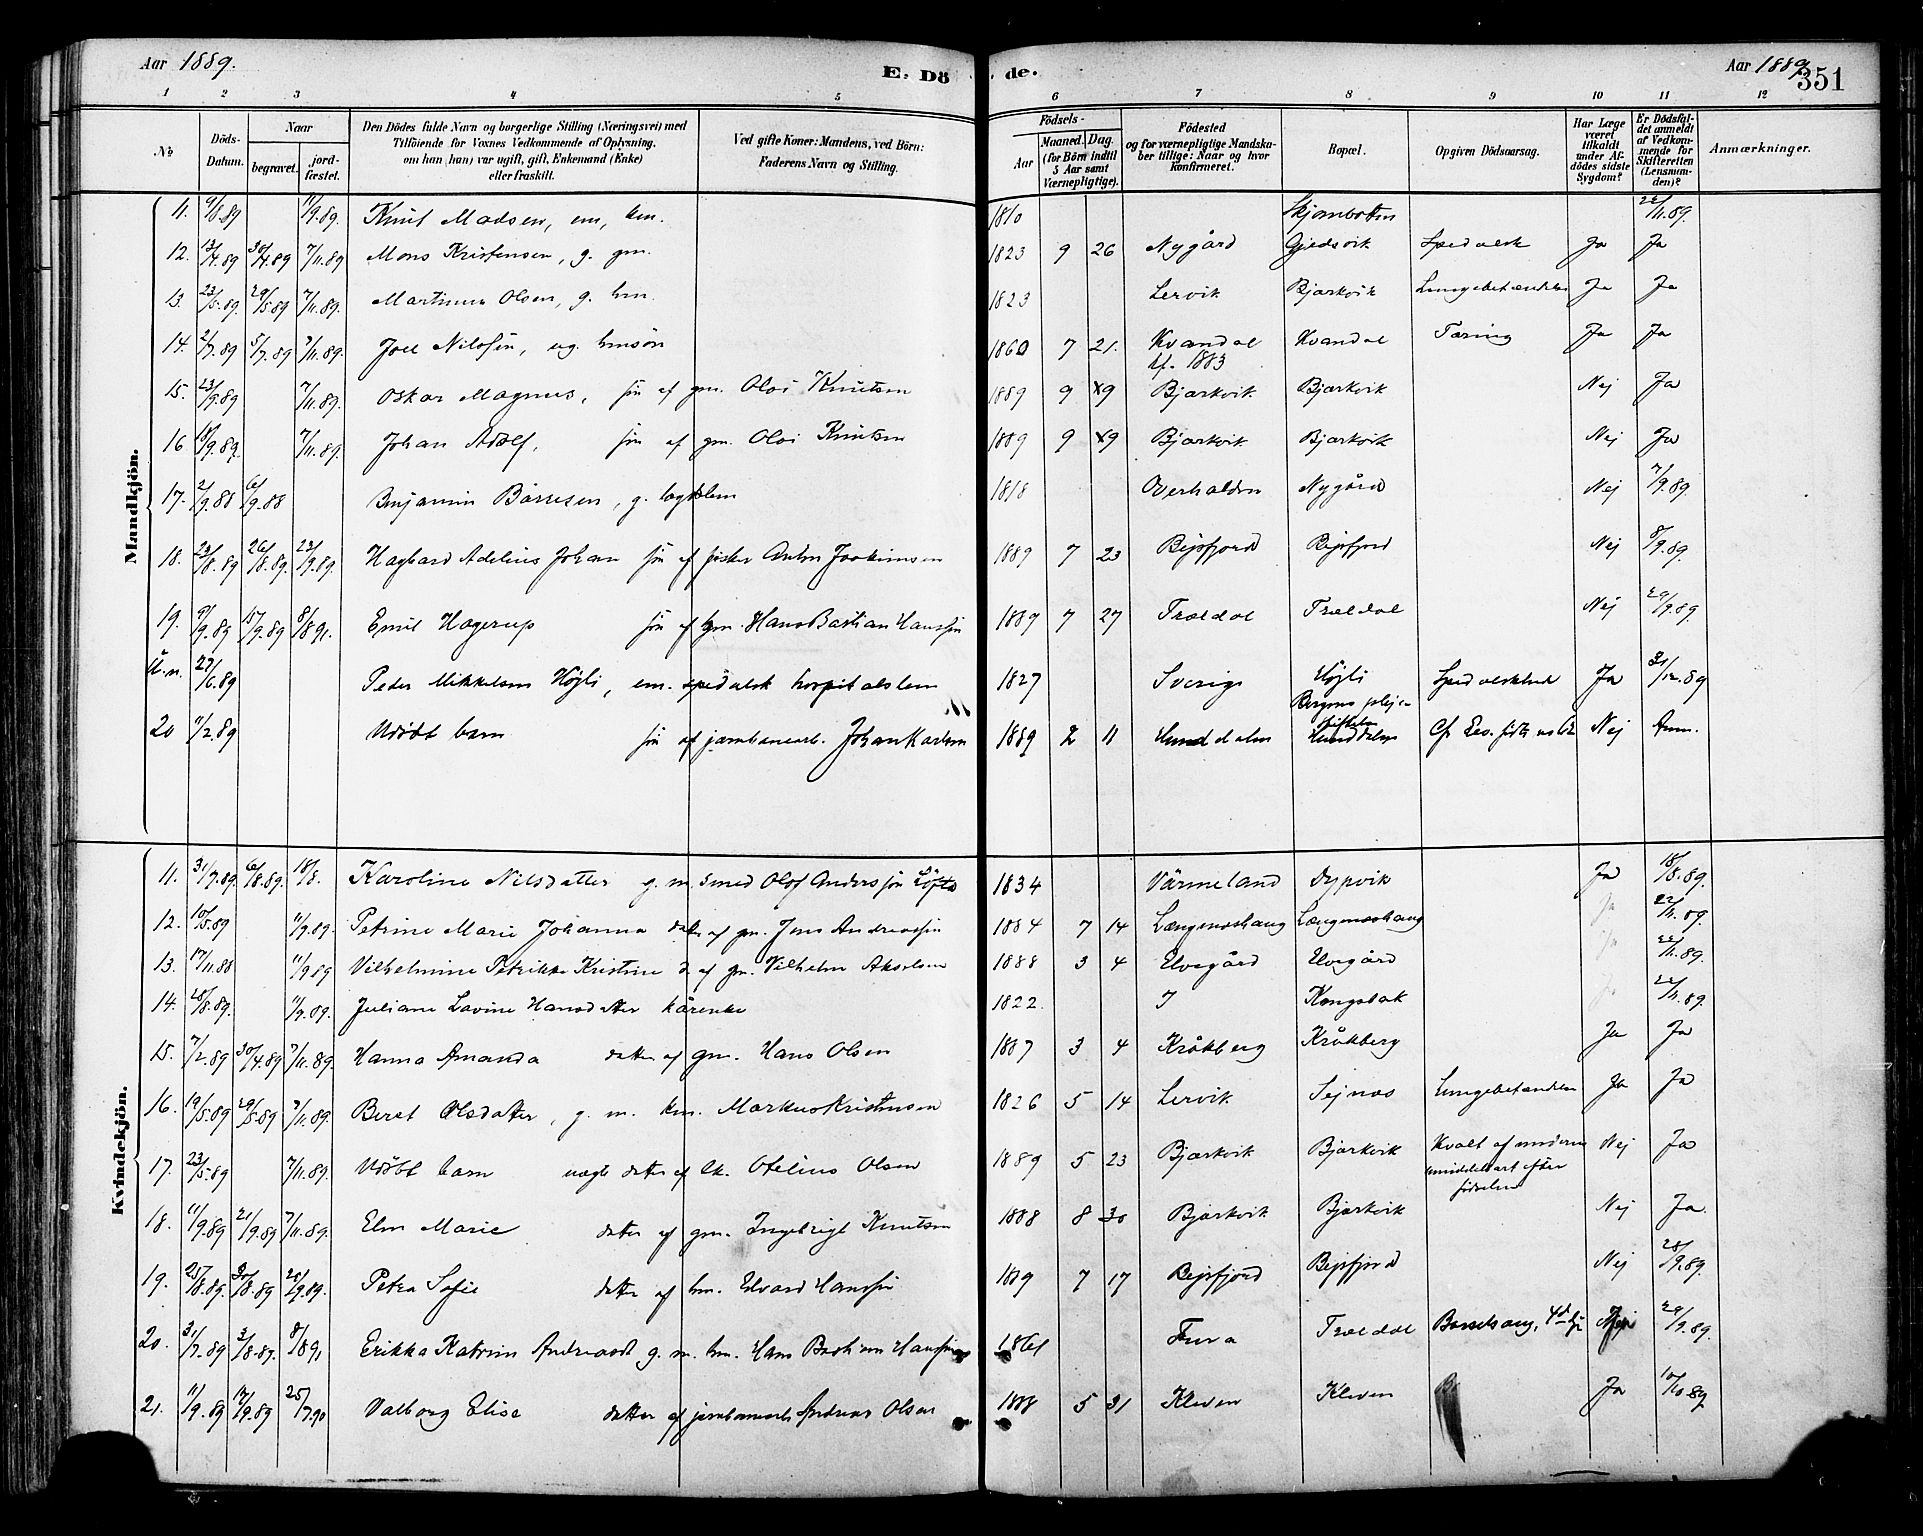 Aar 1889.
E. Dö
de.
Aar 1889
351
1 2 3 4 5 6 7 8 9 10 11 12
No
Döds-Datum.
Naar
begravet.
jordfæstet.
Den Dödes fulde Navn og borgerlige Stilling (Næringsvei) med
Tilföiende for Voxnes Vedkommende af Oplysning,
om han (hun) var ugift, gift, Enkemand (Enke)
eller fraskilt.
Ved gifte Koner: Mandens, ved Börn:
Faderens Navn og Stilling.
Födsels-
Aar
Maaned. Dag.
(for Börn indtil
5 Aar samt
Værnepligtige).
Födested
og for værnepligtige Mandskaber tillige: Naar og hvor
Konfirmeret.
Bopæl.
Opgiven Dödsaarsag.
Har Læge
været
tilkaldt
under Afdödes sidste
Sygdom?
Er Dödsfaldet anmeldt
af Vedkommende for
Skifteretten
(Lensmanden)?
Anmærkninger.
Mandkjön.
11. 9/8.89 11/9.89. Knut Madsen, em, km. 1810 Skjombotten 22/11.89.
12. 13/4.89 30/4.89 7/11.89 Mons Kristensen, g. gm. 1823 9 26 Nygård Gjedsvik Spedalsk Ja Ja
13. 23/5.89. 29/5.89 7/11.89. Martinus Olsen, g. hm. 1823 Lervik Bjærkvik Lungebetændelse Ja Ja
14. 2/7.89 5/7.89 7/11.89. Joel Nilssen, ug. hmsøn 1860 7 21. Kvandal Kvandal Tæring Ja Ja
kf. 1883
15. 23/9.89 7/11.89. Oskar Magnus, søn af gm. Olai Knutsen 1889 9 19 Bjærkvik Bjærkvik Nej Ja
16 18/9.89. 7/11.89. Johan Adolf, søn af gm. Olai Knutsen 1889 9 19 Bjærkvik Bjærkvik Nej Ja
17. 2/9.88 6/9.88 Benjamin Børresen, g. lægdslem 1818 Overhalden Nygård Nej 7/9.89.
18. 23/8.89 26/8.89. 23/9.89. Hagbard Adelius Johan søn af fisker Anton Joakimsen 1889 7 23 Bejsfjord Bejsfjord Nej 8/9.89.
19. 9/9.89 15/9.89 8/8 91. Emil Hagerup søn af hm. Hans Bastian Hanssen 1889 7 27 Trældal Trældal Nej 29/9.89
U.n. 27/6.89 Peder Mikkelsen Højli, em. spedalsk hospitalslem 1827 Sverige Højli Spedalskhed Ja 31/12.89
Bergens plejestiftelse
20 11/2.89 Udøbt barn søn af jærnbanearb. Johan Karlsen 1889 2 11 Hunddalen Hunddalen Nej Anm.
Kvindekjön.
11. 31/7.89. 6/8.89. 18/8. Karoline Nilsdatter g. m. smed Olof Anderssøn Löfto 1834 Värmeland Dypvik Ja 18/8.89.
12. 10/5.89 11/9.89. Petrine Marie Johanna datter af gm. Jens Andreassen 1884 7 14 Længenæshaug Længenæshaug Ja 22/11.89.
13. 17/11.88 11/9.89 Vilhelmine Petrikke Kristine d. af gm. Vilhelm Akselsen 1888 3 4 Elvegård Elvegård Ja 22/11.89.
14. 28/8.89. 11/9.89. Juliane Lovine Hansdatter kårenke 1822. Kongsbak 22/11.89.
15. 7/2.89 30/4.89 7/11.89. Hanna Amanda datter af gm. Hans Olsen 1887 3 4 Kråkberg Kråkberg Ja Ja
16. 19/5.89 29/5.89 7/11.89. Beret Olsdatter, g. m. km. Markus Kristensen 1826 5 14 Lervik Sejnæs Lungebetændelse Ja Ja
17. 23/5.89 7/11.89. Udøbt barn uægte datter af lk. Otelius Olsen 1889 5 23 Bjærkvik Bjærkvik Kvalt af moderen Nej Ja
umiddelbart efter
fødselen
18. 11/9.89 21/9.89 7/11.89. Elen Marie datter af gm. Ingebrigt Knutsen 1888 8 30 Bjærkvik Bjærkvik Nej Ja.
19. 25/8.89. 30/8.89 28/9.89. Petra Sofie datter af hm. Edvard Hanssen 1889 7 17 Bejsfjord Bejsfjord Nej 28/9.89.
20. 31/7.89 3/8.89. 8/8 91 Erikka Katrin Andreasdt g. m. hm. Hans Bastian Hanssen 1861 Fura Trældal Barselsang, Nej 29/9.89.
21. 11/9.89 17/9.89 25/7.90 Valborg Elise datter af jærnbanearb Andreas Olsen 1888 5 31 Kleven Kleven Ja 10/10.89